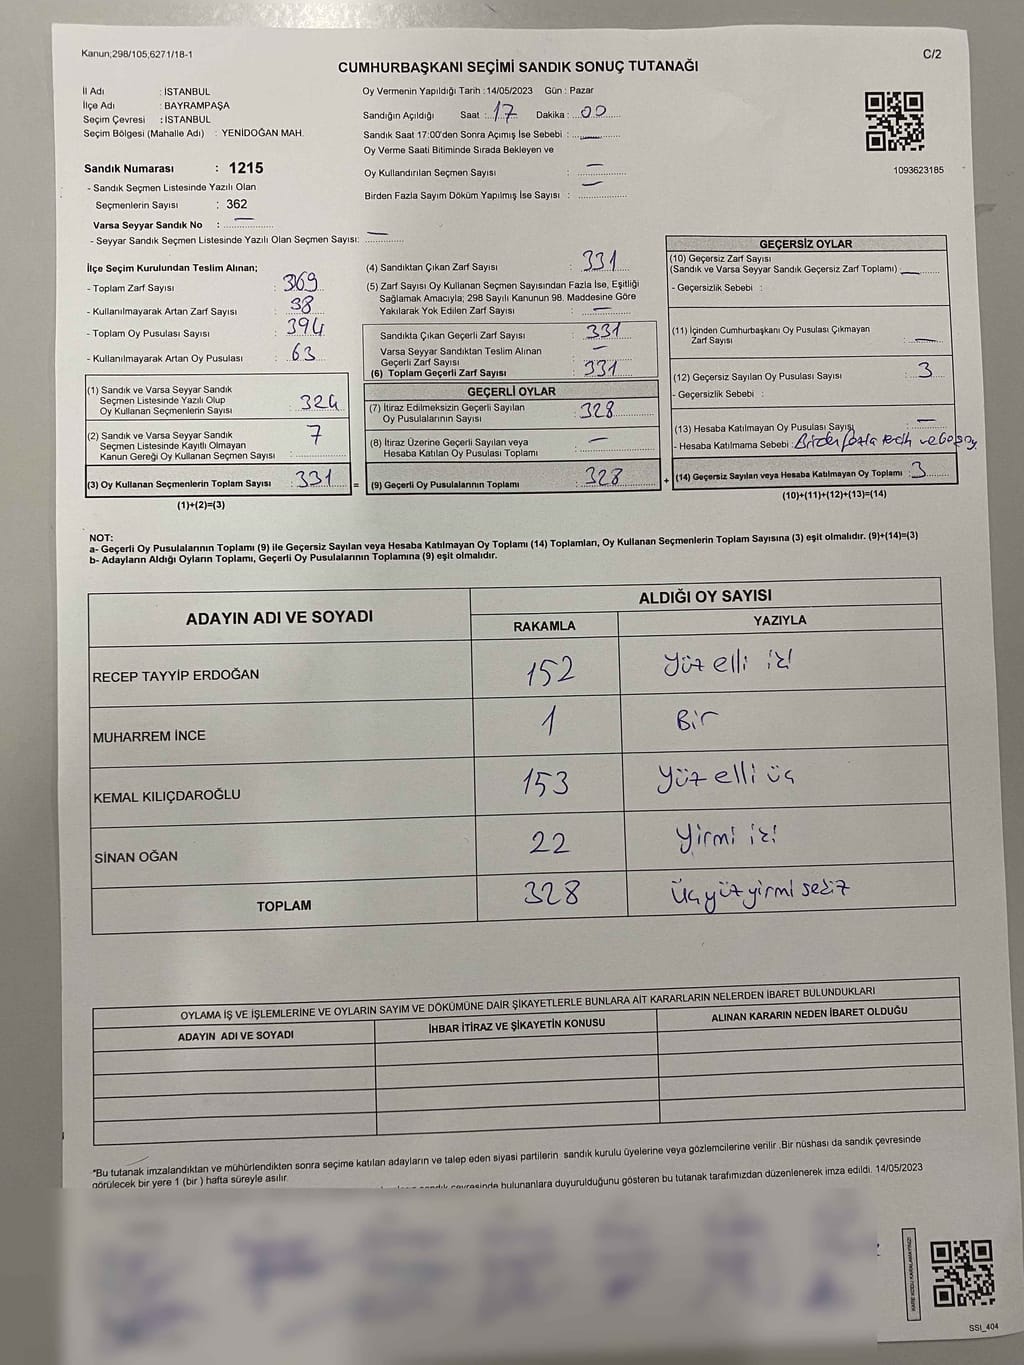 Kanun;298/105,6271/18-1
C/2
CUMHURBAŞKANI SEÇİMİ SANDIK SONUÇ TUTANAĞI
İl Adı : İSTANBUL
İlçe Adı : BAYRAMPAŞA
Seçim Çevresi : İSTANBUL
Seçim Bölgesi (Mahalle Adı) : YENİDOĞAN MAH.
Sandık Numarası : 1215
- Sandık Seçmen Listesinde Yazılı Olan
Seçmenlerin Sayısı : 362
Varsa Seyyar Sandık No : —
- Seyyar Sandık Seçmen Listesinde Yazılı Olan Seçmen Sayısı: —
Oy Vermenin Yapıldığı Tarih :14/05/2023 Gün : Pazar
Sandığın Açıldığı Saat : 17 Dakika : 00
Sandık Saat 17:00'den Sonra Açımış İse Sebebi : —
Oy Verme Saati Bitiminde Sırada Bekleyen ve
Oy Kullandırılan Seçmen Sayısı : —
Birden Fazla Sayım Döküm Yapılmış İse Sayısı : —
1093623185
İlçe Seçim Kurulundan Teslim Alınan;
- Toplam Zarf Sayısı : 369
- Kullanılmayarak Artan Zarf Sayısı : 38
- Toplam Oy Pusulası Sayısı : 394
- Kullanılmayarak Artan Oy Pusulası : 63
(1) Sandık ve Varsa Seyyar Sandık
Seçmen Listesinde Yazılı Olup
Oy Kullanan Seçmenlerin Sayısı : 324
(2) Sandık ve Varsa Seyyar Sandık
Seçmen Listesinde Kayıtlı Olmayan
Kanun Gereği Oy Kullanan Seçmen Sayısı : 7
(3) Oy Kullanan Seçmenlerin Toplam Sayısı : 331 =
(1)+(2)=(3)
(4) Sandıktan Çıkan Zarf Sayısı : 331
(5) Zarf Sayısı Oy Kullanan Seçmen Sayısından Fazla İse, Eşitliği
Sağlamak Amacıyla; 298 Sayılı Kanunun 98. Maddesine Göre
Yakılarak Yok Edilen Zarf Sayısı : —
Sandıkta Çıkan Geçerli Zarf Sayısı : 331
Varsa Seyyar Sandıktan Teslim Alınan
Geçerli Zarf Sayısı : —
(6) Toplam Geçerli Zarf Sayısı : 331
GEÇERLİ OYLAR
(7) İtiraz Edilmeksizin Geçerli Sayılan
Oy Pusulalarının Sayısı : 328
(8) İtiraz Üzerine Geçerli Sayılan veya
Hesaba Katılan Oy Pusulası Toplamı : —
(9) Geçerli Oy Pusulalarının Toplamı : 328 +
GEÇERSİZ OYLAR
(10) Geçersiz Zarf Sayısı
(Sandık ve Varsa Seyyar Sandık Geçersiz Zarf Toplamı) : —
- Geçersizlik Sebebi :
(11) İçinden Cumhurbaşkanı Oy Pusulası Çıkmayan
Zarf Sayısı : —
(12) Geçersiz Sayılan Oy Pusulası Sayısı : 3
- Geçersizlik Sebebi :
(13) Hesaba Katılmayan Oy Pusulası Sayısı : —
- Hesaba Katılmama Sebebi :
(14) Geçersiz Sayılan veya Hesaba Katılmayan Oy Toplamı : 3
(10)+(11)+(12)+(13)=(14)
NOT:
a- Geçerli Oy Pusulalarının Toplamı (9) ile Geçersiz Sayılan veya Hesaba Katılmayan Oy Toplamı (14) Toplamları, Oy Kullanan Seçmenlerin Toplam Sayısına (3) eşit olmalıdır. (9)+(14)=(3)
b- Adayların Aldığı Oyların Toplamı, Geçerli Oy Pusulalarının Toplamına (9) eşit olmalıdır.
ADAYIN ADI VE SOYADI
ALDIĞI OY SAYISI
RAKAMLA YAZIYLA
RECEP TAYYİP ERDOĞAN 152 Yüz elli iki
MUHARREM İNCE 1 Bir
KEMAL KILIÇDAROĞLU 153 Yüz elli üç
SİNAN OĞAN 22 Yirmi iki
TOPLAM 328 Üç yüz yirmi sekiz
OYLAMA İŞ VE İŞLEMLERİNE VE OYLARIN SAYIM VE DÖKÜMÜNE DAİR ŞİKAYETLERLE BUNLARA AİT KARARLARIN NELERDEN İBARET BULUNDUKLARI
ADAYIN ADI VE SOYADI İHBAR İTİRAZ VE ŞİKAYETİN KONUSU ALINAN KARARIN NEDEN İBARET OLDUĞU
*Bu tutanak imzalandıktan ve mühürlendikten sonra seçime katılan adayların ve talep eden siyasi partilerin sandık kurulu üyelerine veya gözlemcilerine verilir .Bir nüshası da sandık çevresinde
görülecek bir yere 1 (bir ) hafta süreyle asılır.
sandık çevresinde bulunanlara duyurulduğunu gösteren bu tutanak tarafımızdan düzenlenerek imza edildi. 14/05/2023
KARE KODU KARALAMAYINIZ!
SSI_404